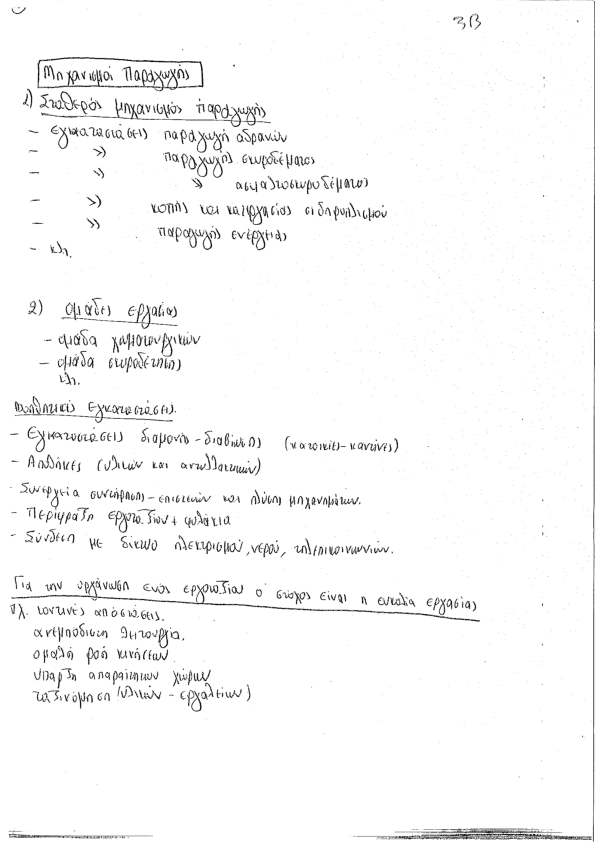 3B
Μηχανισμοί Παραγωγής
1) Σταθερός μηχανισμός παραγωγής
- Εγκαταστάσεις παραγωγή αδρανών
- » παραγωγής σκυροδέματος
- » » ασφαλτοσκυροδέματος
- » κοπής και κατεργασίας σιδηροπλισμού
- » παραγωγής ενέργειας
- κλπ.
2) Ομάδες εργασίας
- ομάδα χωματουργικών
- ομάδα σκυροδέτησης
κλπ.
Βοηθητικές εγκαταστάσεις.
- Εγκαταστάσεις διαμονής - διαβίωσης (κατοικίες - καντίνες)
- Αποθήκες (υλικών και ανταλλακτικών)
- Συνεργεία συντήρησης - επισκευών και πλύσης μηχανημάτων.
- Περίφραξη εργοταξίων + φυλάκια
- Σύνδεση με δίκτυο ηλεκτρισμού, νερού, τηλεπικοινωνιών.
Για την οργάνωση ενός εργοταξίου ο στόχος είναι η ευκολία εργασίας
π.χ. κοντινές αποστάσεις.
ανεμπόδιστη λειτουργία.
ομαλή ροή κινήσεων
ύπαρξη απαραίτητων χώρων
ταξινόμηση (υλικών - εργαλείων)